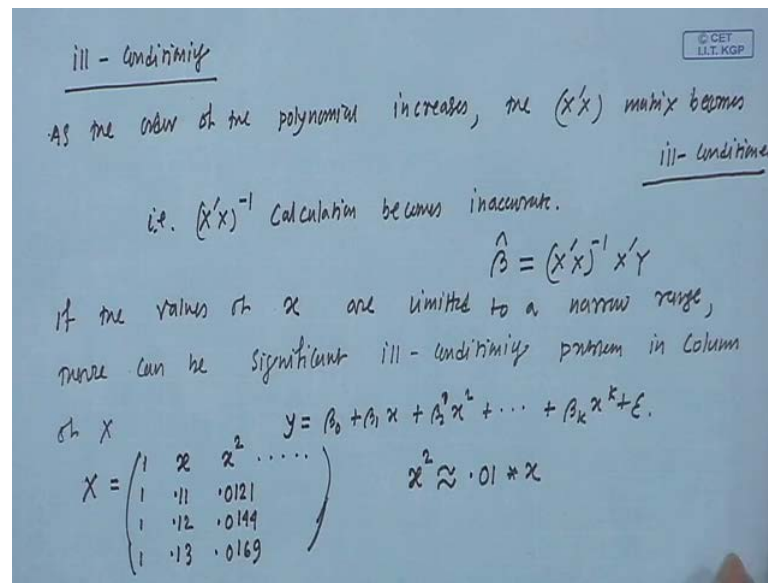 ill - Conditioning
© CET
I.I.T. KGP
As the order of the polynomial increases, the (x'x) matrix becomes
ill - Conditione
i.e. (x'x)⁻¹ Calculation becomes inaccurate.
β̂ = (x'x)⁻¹ x'Y
If the values of x are limited to a narrow range,
there can be significant ill - Conditioning problem in Column
of X
y = β₀ + β₁ x + β₂ x² + ··· + βₖ xᵏ + ε.
X = ( 1 x x² ·····
1 ·11 ·0121
1 ·12 ·0144
1 ·13 ·0169 )
x² ≈ ·01 * x